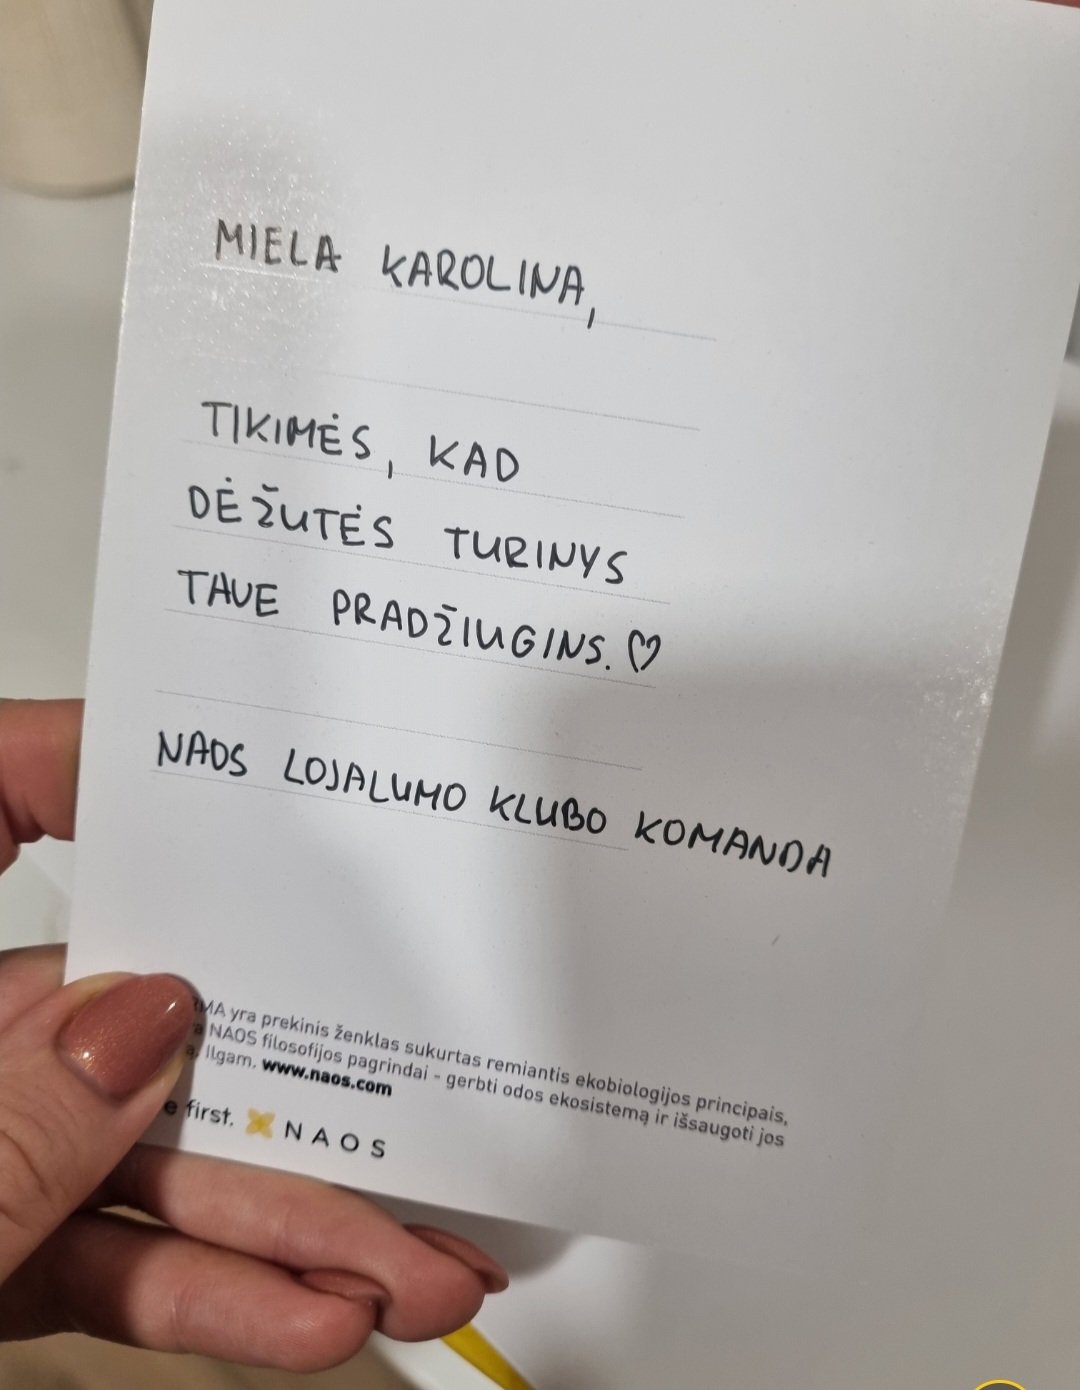 MIELA KAROLINA,
TIKIMĖS, KAD
DĖŽUTĖS TURINYS
TAVE PRADŽIUGINS. ♡
NAOS LOJALUMO KLUBO KOMANDA
yra prekinis ženklas sukurtas remiantis ekobiologijos principais,
NAOS filosofijos pagrindai - gerbti odos ekosistemą ir išsaugoti jos
Ilgam. www.naos.com
first. NAOS